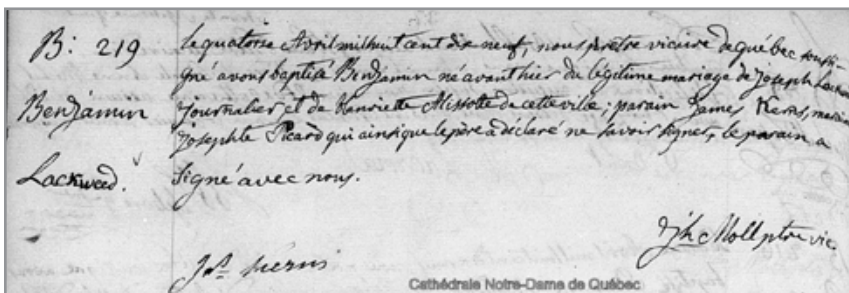 B: 219
Benjamin
Lackweed.
Le quatorze Avril mil huit cent dix neuf, nous prêtre vicaire de québec soussi-
gné avons baptisé Benjamin né avant hier du légitime mariage de Joseph
journalier et de henriette Missotte de cette ville; parain James Kerns,
Josephte Picard qui ainsi que le père a déclaré ne savoir signer, le parain a
signé avec nous.
Jph Moll ptre vic.
Jas. Kerns
Cathédrale Notre-Dame de Québec